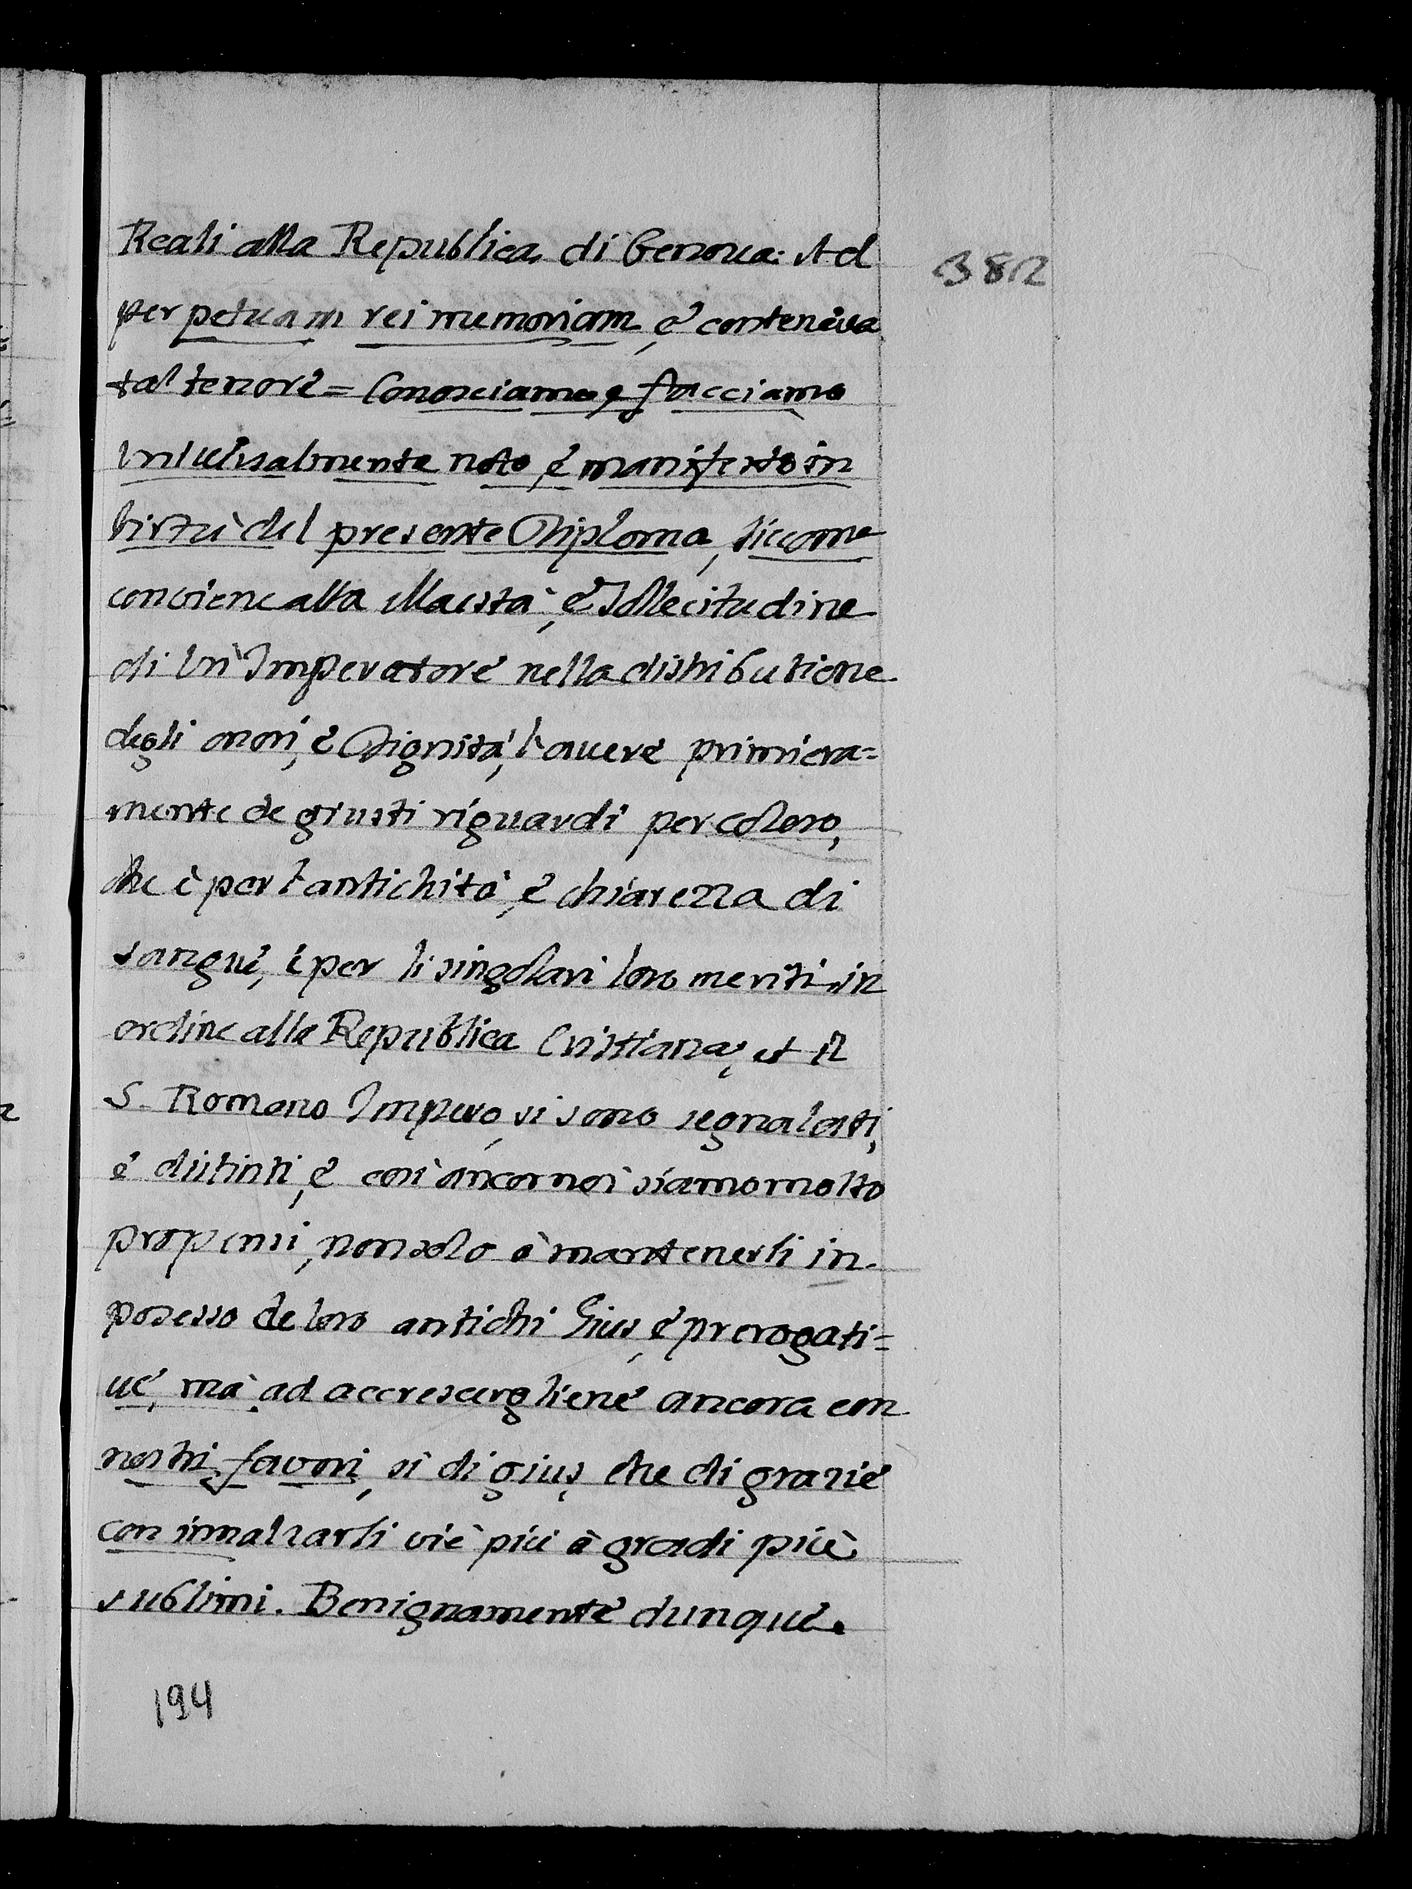 Reali alla Republica di Genoua: Ad
382
perpetuam rei memoriam, é conteneua
tal tenoré = Conosciamo, e facciamo
Vniuersalmente noto, é manifesto in
Virtù del presente Diploma, siccome
conviene alla Maestà, é sollecitudine
di Vn Imperatoré nella distributione
degli onori, é Dignità, l'aueré primiera=
mente de giusti riguardi per coloro,
che è per l'antichità, é chiarezza di
sangué, è per li singolari loro meriti in
ordine alla Republica Cristiana, et il
S. Romano Impero, si sono segnalati,
é distinti, é così ancor noi siamo molto
propensi, non solo à mantenerli in
posesso de loro antichi Gius, é prerogati=
ué, mà ad accrescergliené ancora con
nostri favori, sì di gius, che di grazié
con innalzarli viè più à gradi più
sublimi. Benignamenté dunqué.
194